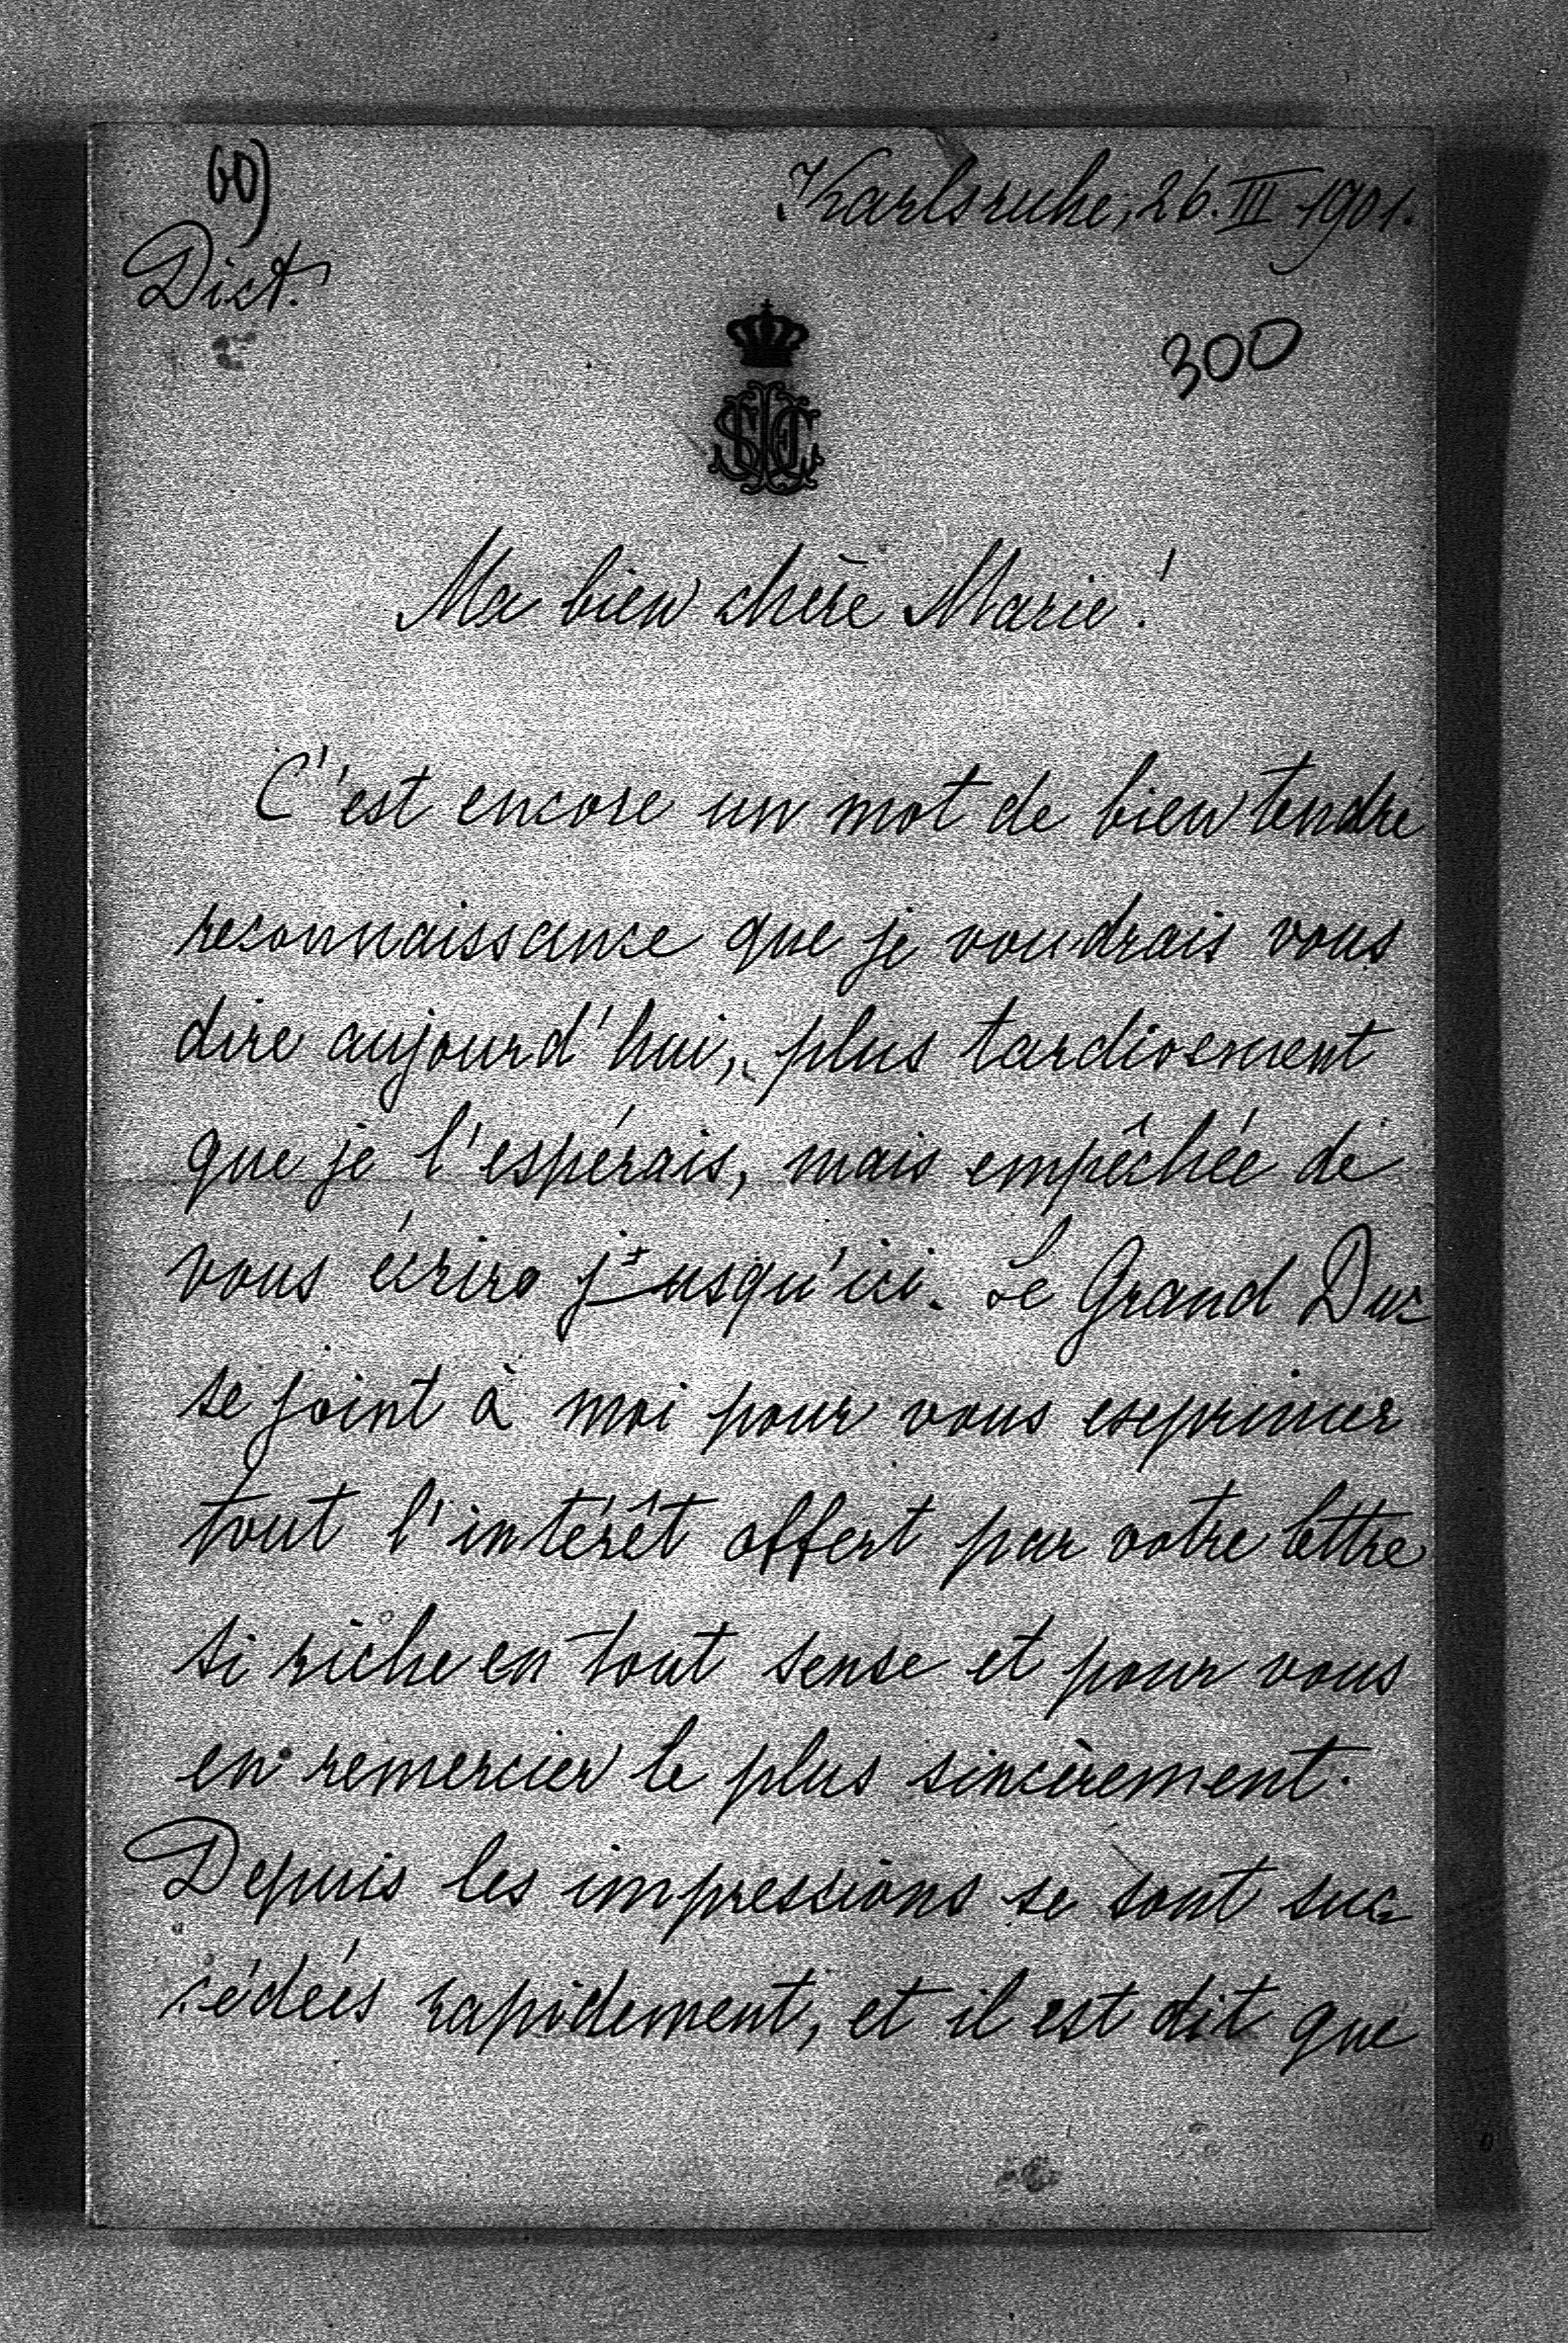 60)
Karlsruhe, 26. III 1901.
Dict.
300
Ma bien chère Marie!
C'est encore un mot de bien tendre
reconnaissance que je voudrais vous
dire aujourd'hui, plus tardivement
que je l'espérais, mais empêchée de
vous écrire jusqu'ici. Le Grand Duc
se joint à moi pour vous exprimer
tout l'intérêt offert par votre lettre
si riche en tout sense et pour vous
en remercier le plus sincèrement.
Depuis les impressions se sont suc-
cédées rapidement, et il est dit que